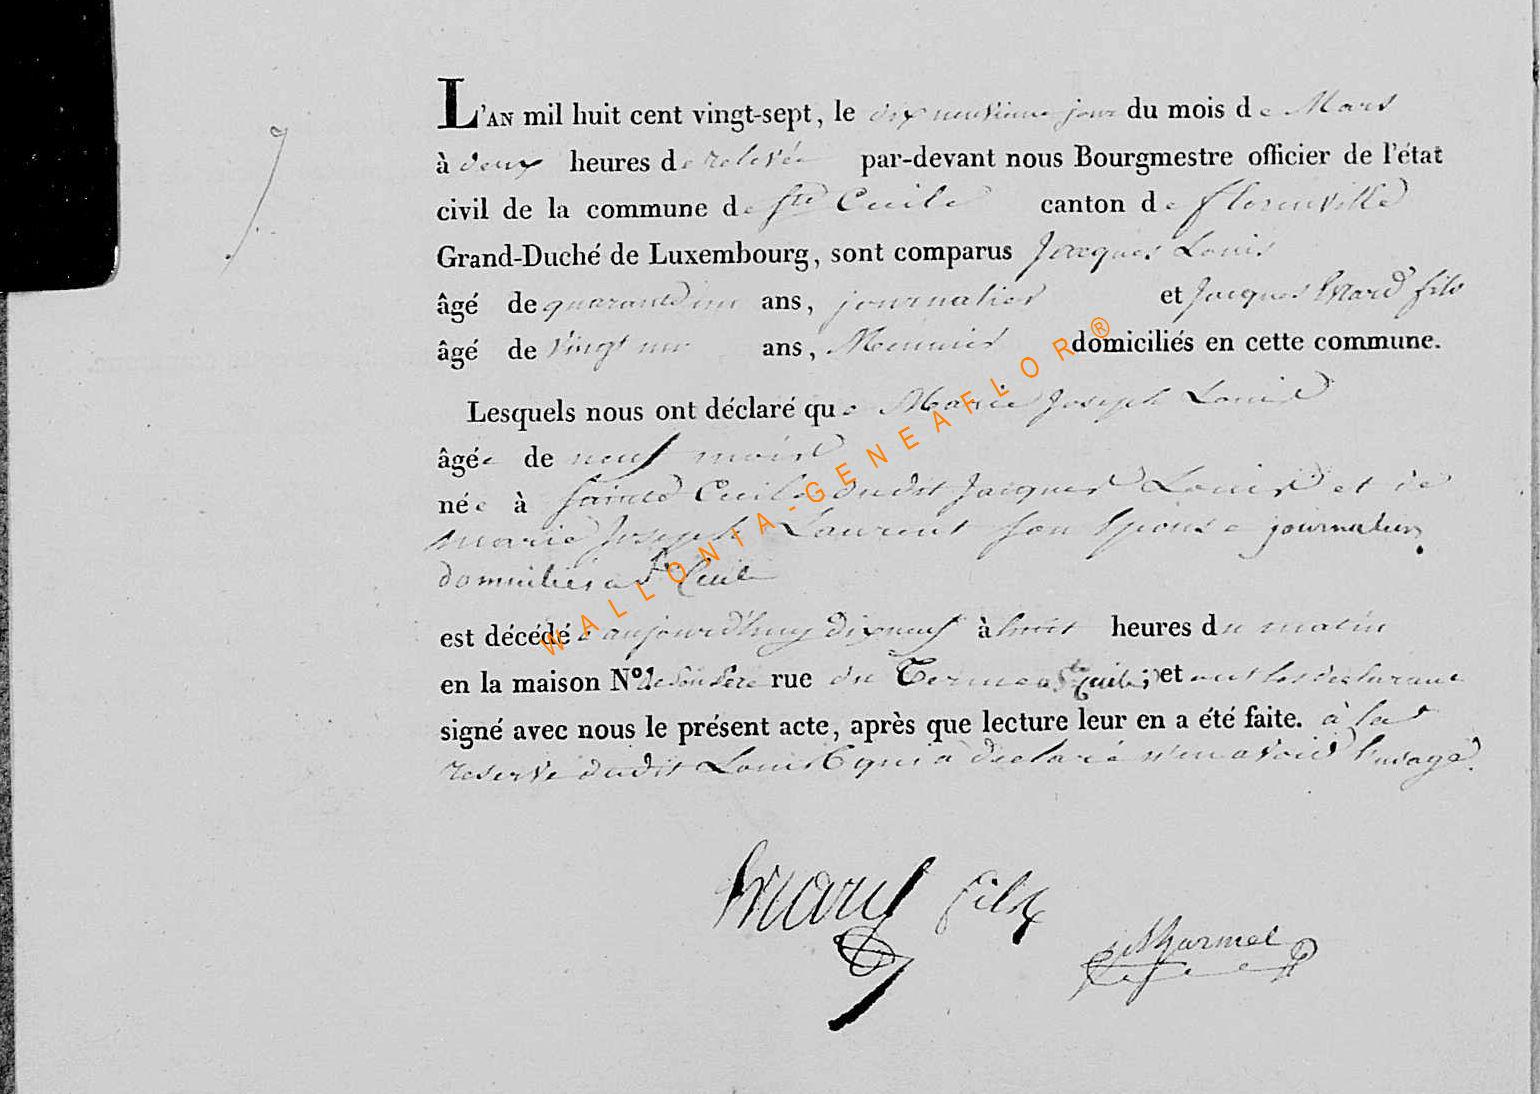 7.
L'AN mil huit cent vingt-sept, le dix neuvieme jour du mois de Mars
à deux heures de relevée par-devant nous Bourgmestre officier de l'état
civil de la commune de Ste Cecile canton de florenville
Grand-Duché de Luxembourg, sont comparus Jacques Louis
âgé de quarante un ans, journalier et Jacques fils
âgé de vingt un ans, Meunier domiciliés en cette commune.
Lesquels nous ont déclaré que Marie Joseph Louis
âgée de neuf mois
née à Sainte Cecile dudit Jacques Louis et de
Marie Joseph Laurent son Epouse journaliers
domiciliés a Ste Cecile
est décédée aujourd'huy dix neuf à huit heures du matin
en la maison No. de son Pere rue du Terme a Ste Cecile; et ont les declarans
signé avec nous le présent acte, après que lecture leur en a été faite. à la
reserve dudit Louis qui a declaré n'en avoir l'usage.
fils
WALLONIA-GENEAFLOR®